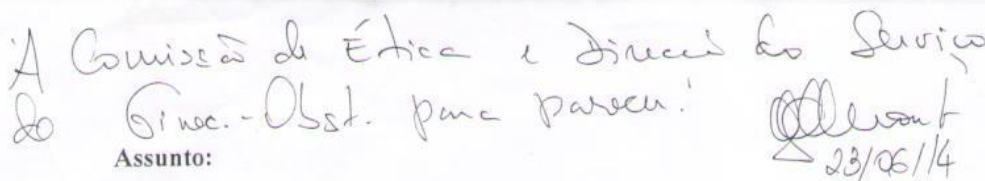 À Comissão de Ética e Direcção do Serviço
de Ginec.-Obst. para parecer.
Assunto:
23/06/14